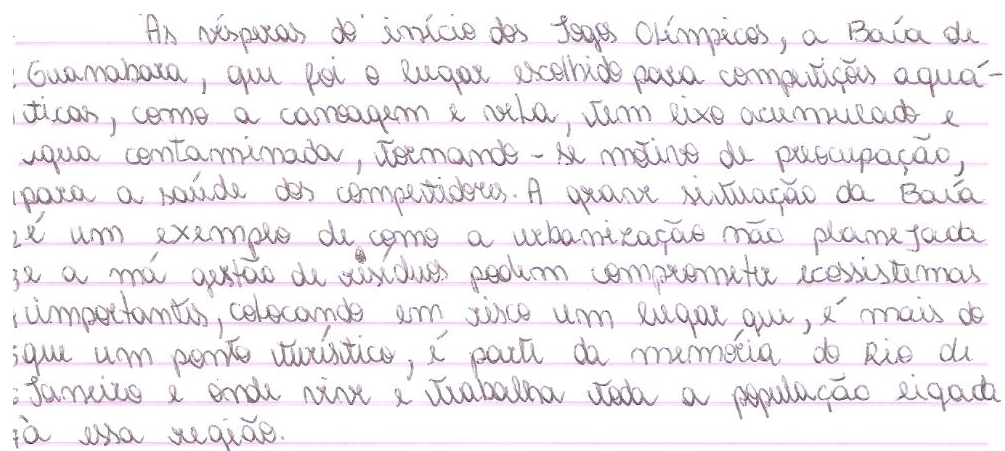 As vésperas do início dos Jogos Olímpicos, a Baía de
Guanabara, que foi o lugar escolhido para competições aquá-
ticas, como a canoagem e vela, tem lixo acumulado e
água contaminada, tornando-se motivo de preocupação,
para a saúde dos competidores. A grave situação da Baía
é um exemplo de como a urbanização não planejada
e a má gestão de resíduos podem comprometer ecossistemas
importantes, colocando em risco um lugar que, é mais do
que um ponto turístico, é parte da memória do Rio de
Janeiro e onde vive e trabalha toda a população ligada
à essa região.